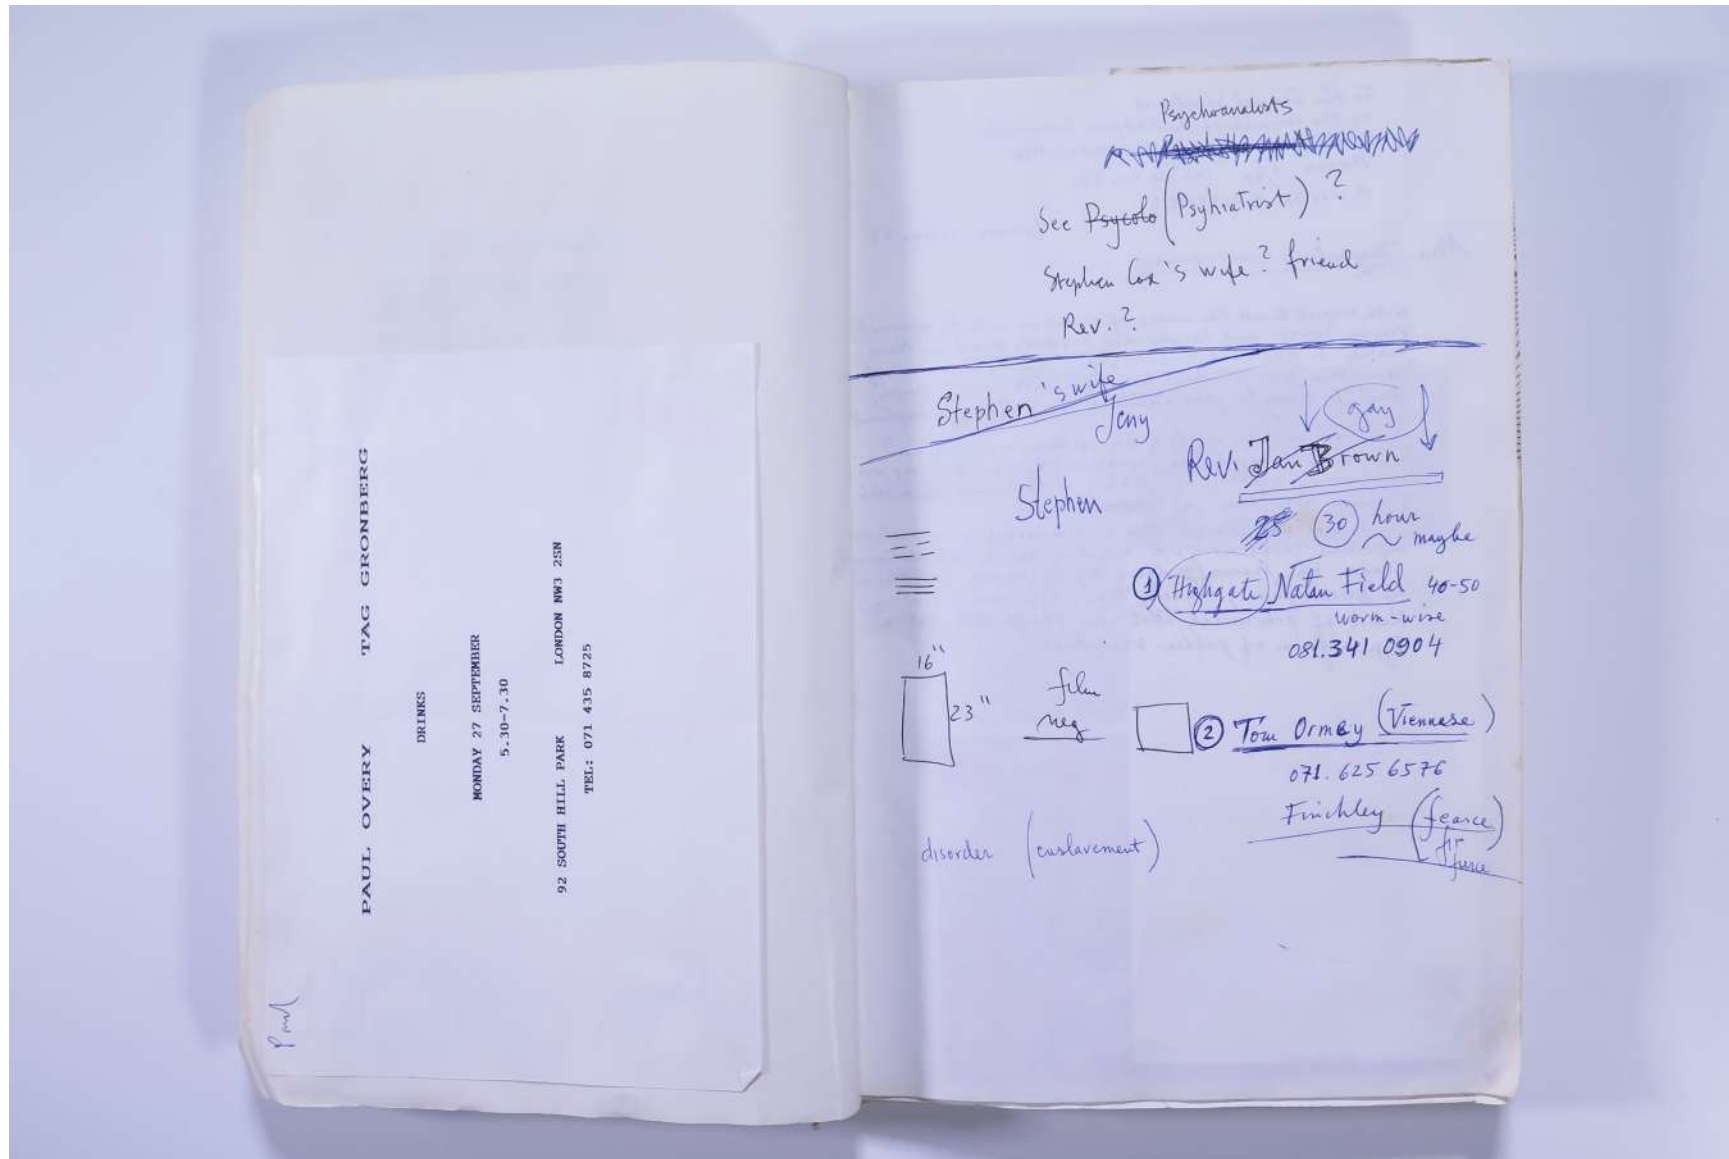 PAUL OVERY TAG GRONBERG
DRINKS
MONDAY 27 SEPTEMBER
5.30-7.30
92 SOUTH HILL PARK LONDON NW3 2SN
TEL: 071 435 8725
Paul
Psychoanalists
See Psycolo (Psyhiatrist) ?
Stephen Cox's wife? friend
Rev. ?
Stephen's wife
Jeny
gay
Rev. Ian Brown
Stephen
25 30 hour
~ maybe
1 Highgate Natan Field 40-50
worm-wise
081.341 0904
16"
23"
film
neg
2 Tom Ormay (Viennese)
071. 625 6576
Finchley (fearce)
disorder (enslavement)